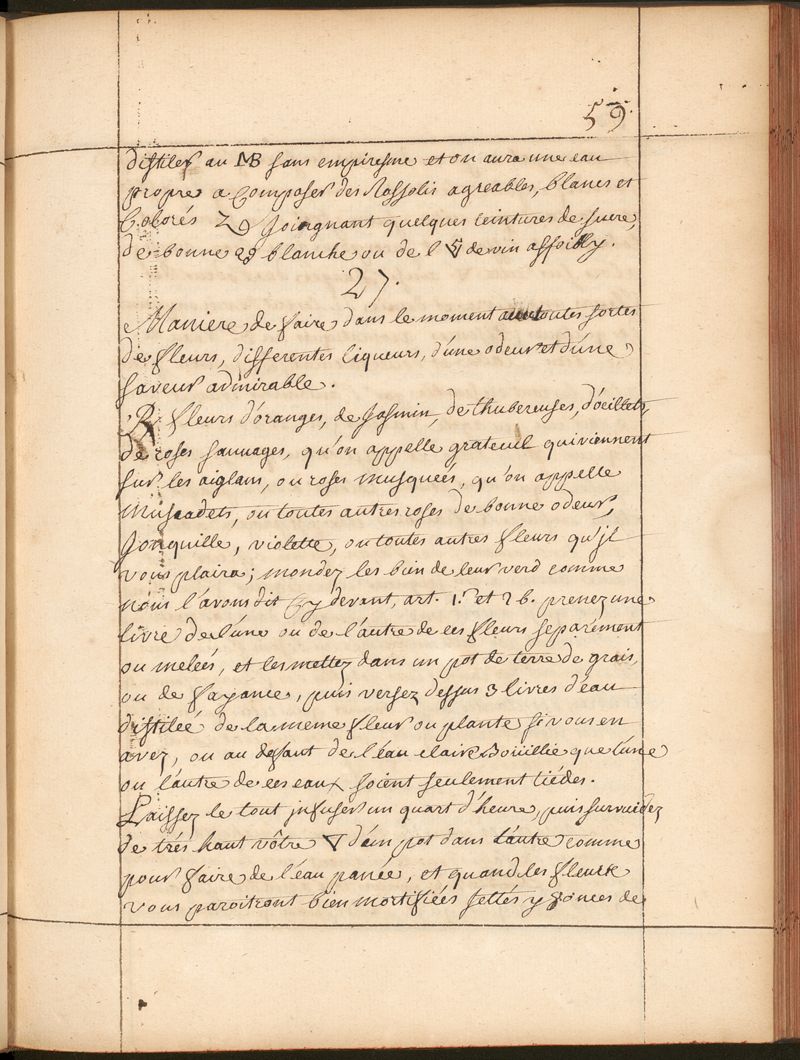 59.
distiler au MB sans empiresme et on aura une eau
propre a Composer des Rossolis agreables, blancs et
Colorés y Joingnant quelques teintures de sucre,
de bonne blanche ou de l de vin assoibly.
27.
Maniere de faire dans le moment toutes sortes
de fleurs, differentes liqueurs, d'une odeur et d'une
saveur admirable.
R fleurs d'oranges, de Jasmin, de thubereuses, d'oeillets,
de roses sauvages, qu'on appelle grateuil qui viennent
sur les aiglans, ou roses musqueés, qu'on appelle
muscadets, ou toutes autres roses de bonne odeur,
Jonquille, violette, ou toutes autres fleurs qu'jl
vous plaira; mondez les bien de leur verd comme
nous l'avons dit Cy devant, art. 1.r et 26. prenez une
livre de l'une ou de l'autre de ces fleurs separément
ou meleés, et les mettez dans un pot de terre de grais,
ou de fayance, puis versez dessus 3 livres d'eau
distileé de la meme fleur ou plante si vous en
avez, ou au defaut de l'eau claire Bouillie que l'une
ou l'autre de ces eaux soient seulement tiédes.
Laissez le tout jnfuser un quart d'heure, puis survuidez
de trés haut vôtre ▽ d'un pot dans l'autre comme
pour faire de l'eau panée, et quand les fleurs
vous paroitront bien mortifiées jettés y onces de